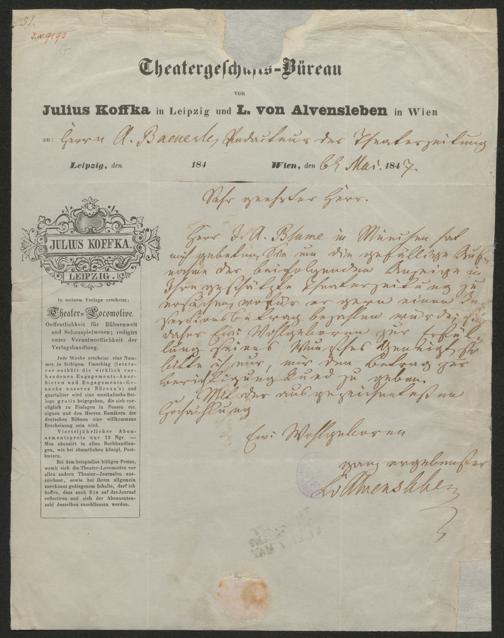 51.
Theatergeschäfts-Büreau
von
Julius Koffka in Leipzig und L. von Alvensleben in Wien
an: Herrn A. Baeuerle, Redacteur der Theaterzeitung
Leipzig, den 184 Wien, den 6t Mai. 1847.
Sehr geehrter Herr.
Herr J. A. Blume in München hat
mich gebeten, Sie um die gefällige Auf-
nahme der beifolgenden Anzeige in
Ihre geschätzte Theaterzeitung zu
ersuchen, wofür er gern einen In-
sertionsbetrag bezahlen würde;
daher Ew: Wohlgeboren zur Erfül-
lung seines Wunsches geneigt, so
bitte ich nur, mir den Betrag zur
Berichtigung kund zu geben.
Mit der ausgezeichnetesten
Hochachtung
Ew: Wohlgeboren
ganz ergebenster
LvAlvensleben
JULIUS KOFFKA.
LEIPZIG.
In meinem Verlage erscheint:
Theater-Locomotive.
Oeffentlichkeit für Bühnenwelt
und Schauspielwesen; redigirt
unter Verantwortlichkeit der
Verlagshandlung.
Jede Woche erscheint eine Num-
mer, in farbigem Umschlag (letzte-
rer enthält die wirklich vor-
handenen Engagements-Aner-
bieten und Engagements-Ge-
suche unseres Büreau's) und
quartaliter wird eine musikalische Bei-
lage gratis beigegeben, die sich vor-
züglich zu Einlagen in Possen etc.
eignen und den Herren Komikern der
deutschen Bühne eine willkommene
Erscheinung sein wird.
Vierteljährlicher Abon-
nementspreis nur 15 Ngr. —
Man abonnirt in allen Buchhandlun-
gen, wie bei sämmtlichen königl. Post-
ämtern.
Bei dem beispiellos billigen Preise,
womit sich die Theater-Locomotive vor
allen andern Theater-Journalen aus-
zeichnet, sowie bei ihrem allgemein
anerkannt gediegenem Inhalte, darf ich
hoffen, dass auch Sie auf das Journal
reflectiren und sich der Abonnenten-
zahl desselben anschliessen werden.